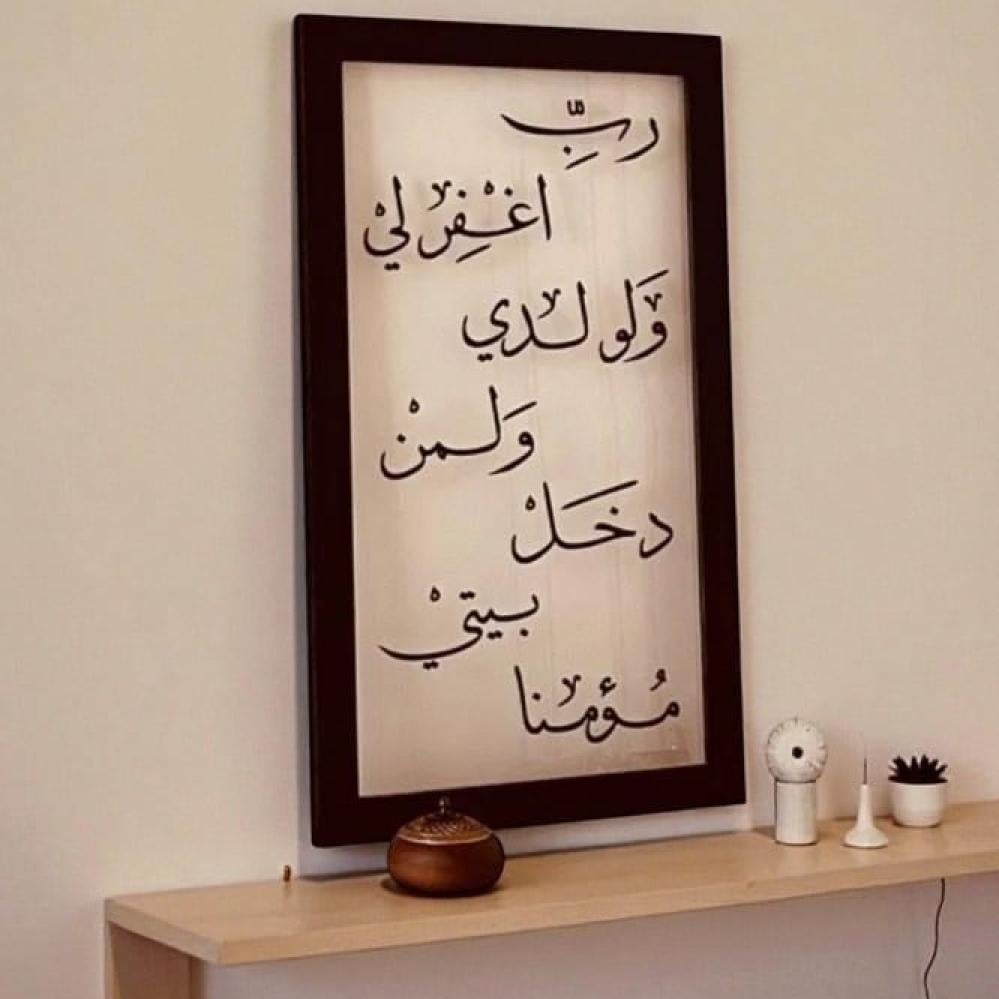 رَبِّ
اغْفِرْ لِيْ
وَلو لدي
وَلمنْ
دخَلْ
بيتيْ
مُؤمنا